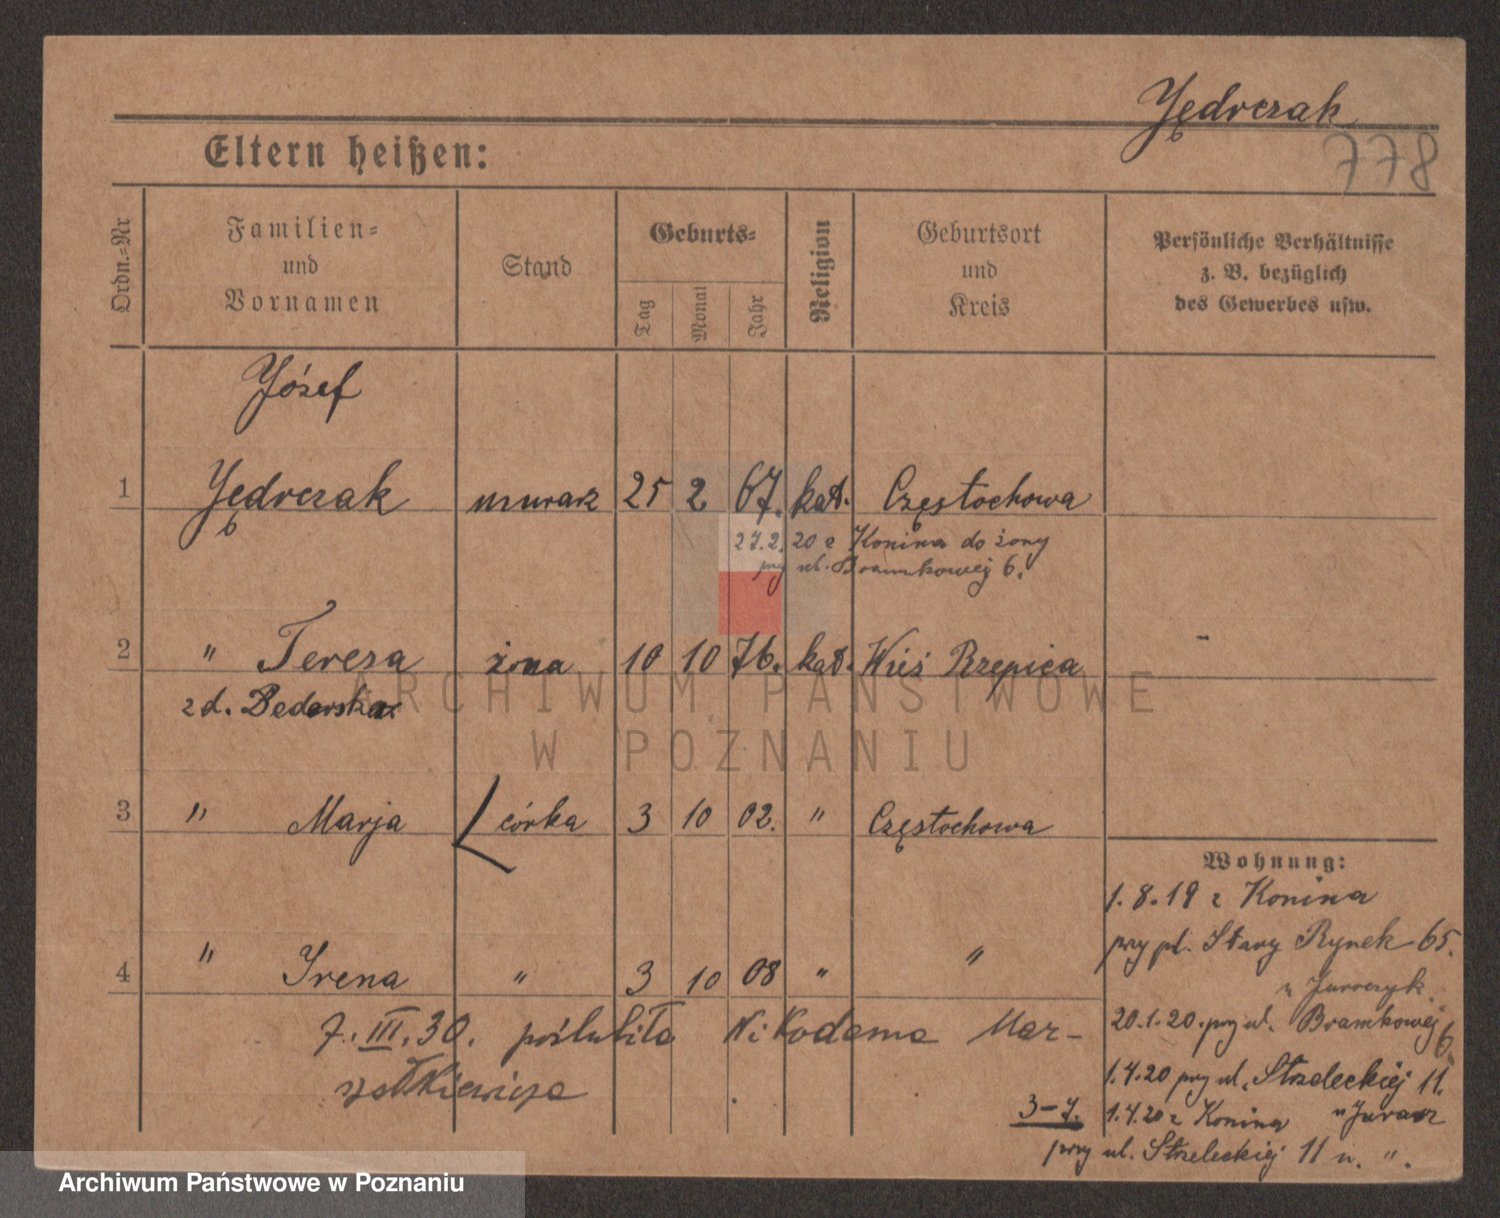 Jędrczak
778
Eltern heißen:
Ordn.-Nr
Familien-
und
Vornamen
Stand
Geburts-
Tag
Monat
Jahr
Religion
Geburtsort
und
Kreis
Persönliche Verhältnisse
z. B. bezüglich
des Gewerbes usw.
Józef
1 Jędrczak murarz 25 2 67. kat. Częstochowa
27.2.20 z Konina do żony
przy ul. Bramkowej 6.
2 " Teresa żona 10 10 76. kat. Wieś Rzepica -
z d. Bederska
3 " Marja córka 3 10 02. " Częstochowa
Wohnung:
1.8.19 z Konina
przy pl. Stary Rynek 65.
4 " Irena " 3 10 08 " "
u
20.1.20. przy ul. Bramkowej 6
7. III. 30. poślubiła Nikodema Mar-
szałkiewicza
1.4.20 przy ul. Strzeleckiej 11.
3-7. 1.4.20 z Konina u
przy ul. Strzeleckiej 11 u. ".
ARCHIWUM PAŃSTWOWE
W POZNANIU
Archiwum Państwowe w Poznaniu